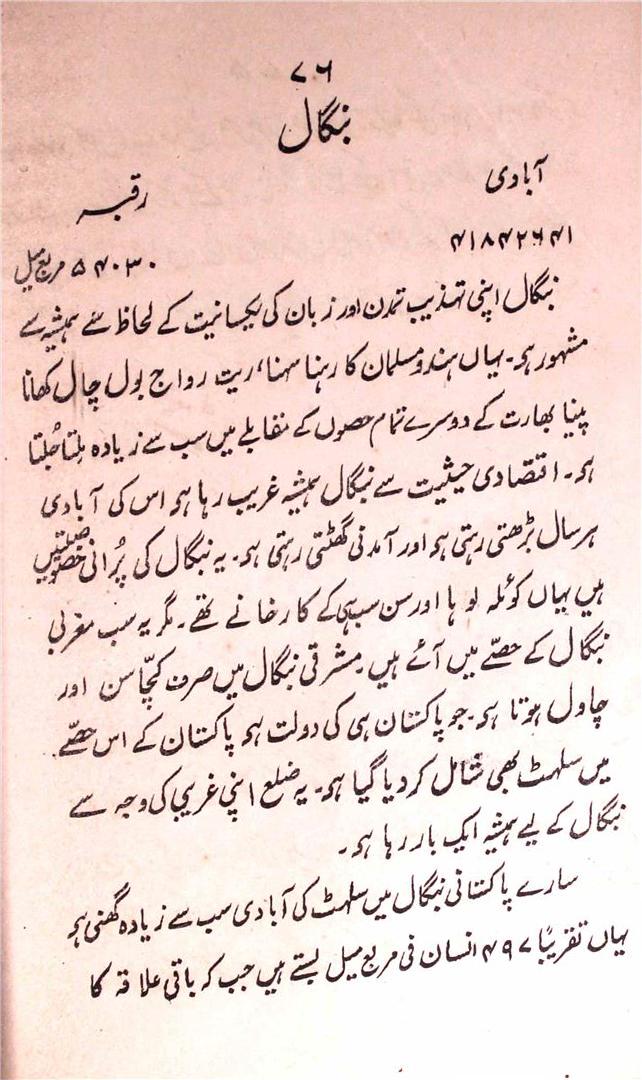 ۷۶
بنگال
آبادی
رقبہ
۴۱۸۴۲۶۴۱
۵۴۰۳۰ مربع میل
بنگال اپنی تہذیب تمدن اور زبان کی یکسانیت کے لحاظ سے ہمیشہ سے
مشہور ہو۔ یہاں ہندو مسلمان کا رہنا سہنا، ریت رواج بول چال کھانا
پینا بھارت کے دوسرے تمام حصوں کے مقابلے میں سب سے زیادہ ملتا جُلتا
ہو۔ اقتصادی حیثیت سے بنگال ہمیشہ غریب رہا ہو اس کی آبادی
ہر سال بڑھتی رہتی ہو اور آمدنی گھٹتی رہتی ہو۔ یہ بنگال کی پُرانی خصوصیتیں
ہیں یہاں کوئلہ لوہا اور سن سبہی کے کارخانے تھے۔ مگر یہ سب مغربی
بنگال کے حصّے میں آئے ہیں۔ مشرقی بنگال میں صرف کچّا سن اور
چاول ہوتا ہو۔ جو پاکستان ہی کی دولت ہو پاکستان کے اس حصّے
میں سلہٹ بھی شامل کر دیا گیا ہو۔ یہ ضلع اپنی غریبی کی وجہ سے
بنگال کے لیے ہمیشہ ایک بار رہا ہو۔
سارے پاکستانی بنگال میں سلہٹ کی آبادی سب سے زیادہ گھنی ہو
یہاں تقریباً ۴۹۷ انسان فی مربع میل بستے ہیں جب کہ باقی علاقہ کا